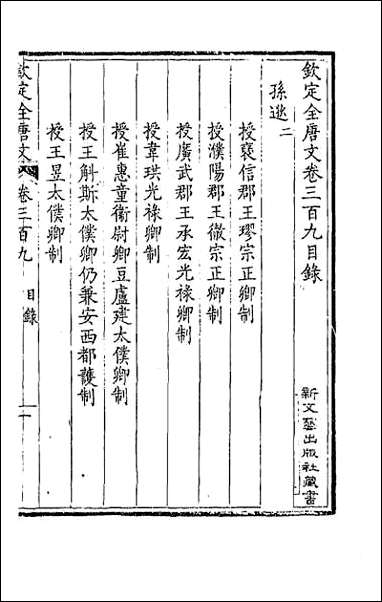 欽定全唐文卷三百九目錄
孫逖二
授襃信郡王璆宗正卿制
授濮陽郡王徹宗正卿制
授廣武郡王承宏光祿卿制
授韋珙光祿卿制
授崔惠童衞尉卿豆盧建太僕卿制
授王斛斯太僕卿仍兼安西都護制
授王昱太僕卿制
欽定全唐文
卷三百九
目錄
一
新文藝出版社藏書